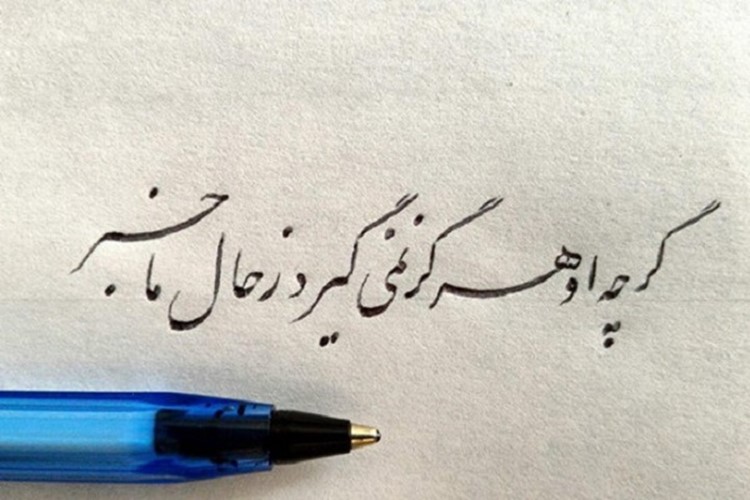 گرچه او هرگز نمی گیرد ز حال ما خبر